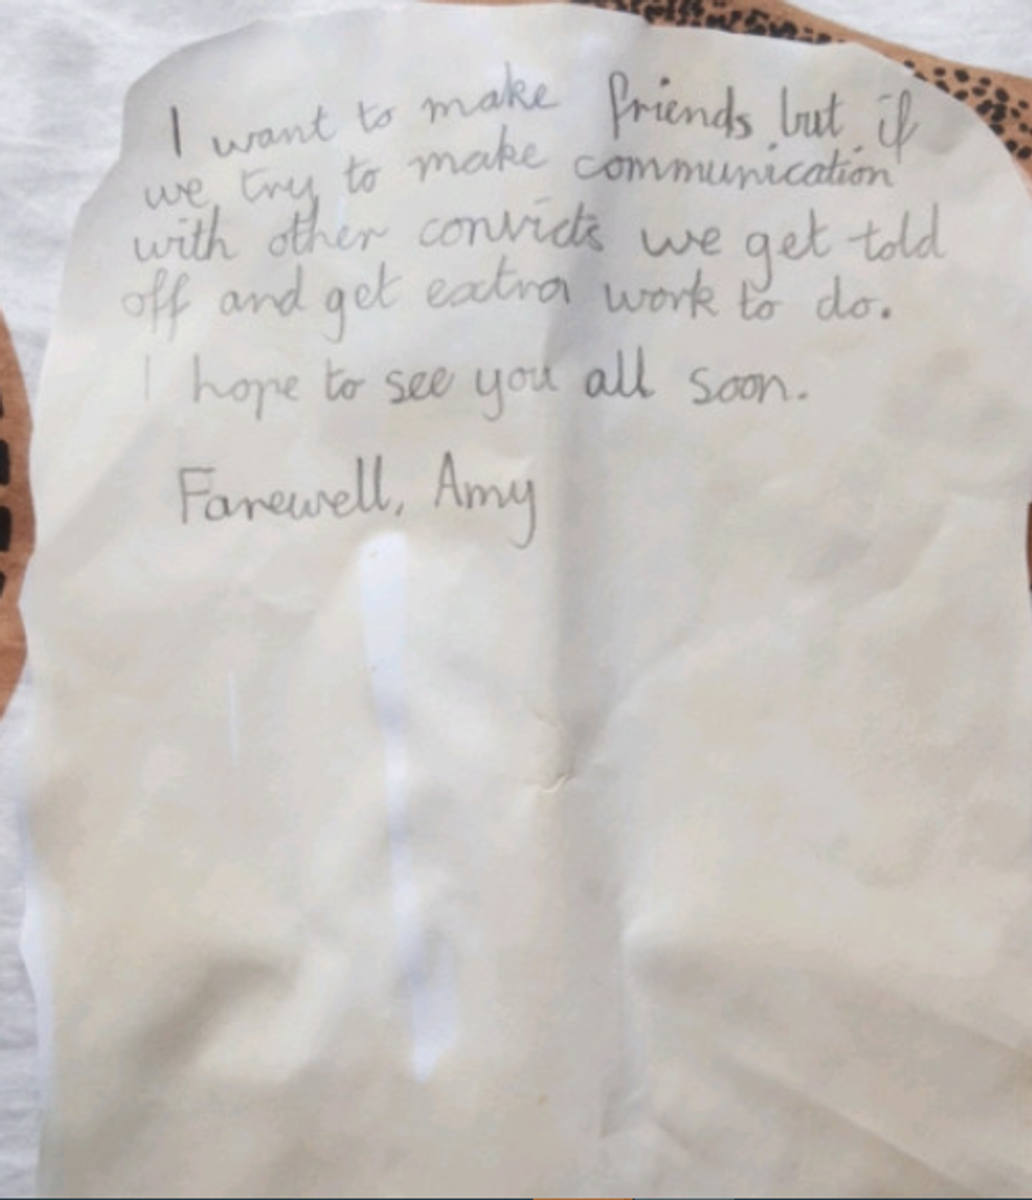 I want to make friends but if
we try to make communication
with other convicts we get told
off and get extra work to do.
I hope to see you all soon.
Farewell, Amy